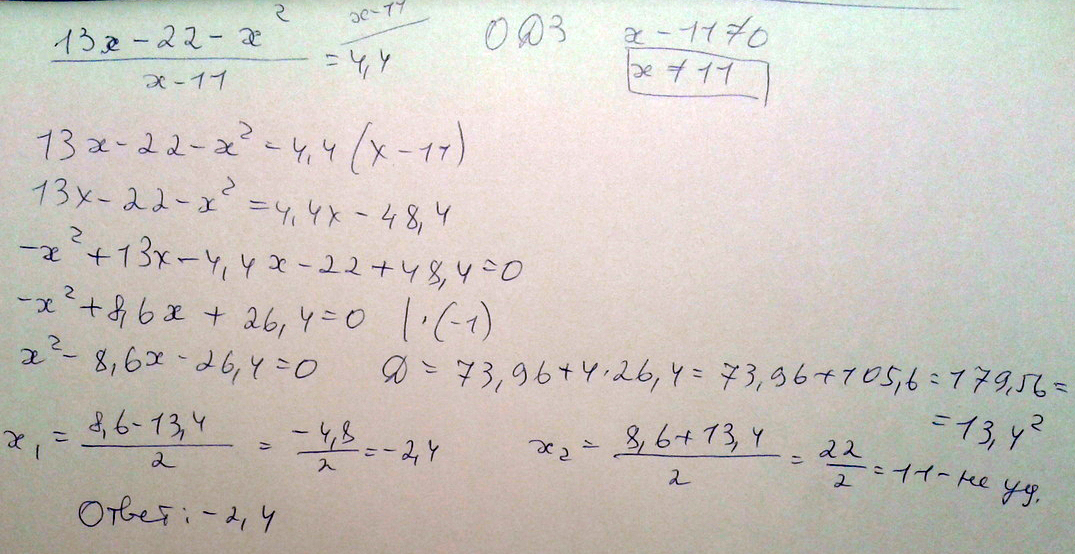 (13x-22-x²)/(x-11) = 4,4 /x-11 ОДЗ x-11≠0
x≠11
13x-22-x²=4,4(x-11)
13x-22-x²=4,4x-48,4
-x²+13x-4,4x-22+48,4=0
-x²+8,6x+26,4=0 |·(-1)
x²-8,6x-26,4=0 D=73,96+4·26,4=73,96+105,6=179,56=
=13,4²
x₁=(8,6-13,4)/2=-4,8/2=-2,4 x₂=(8,6+13,4)/2=22/2=11-не уд.
Ответ:-2,4